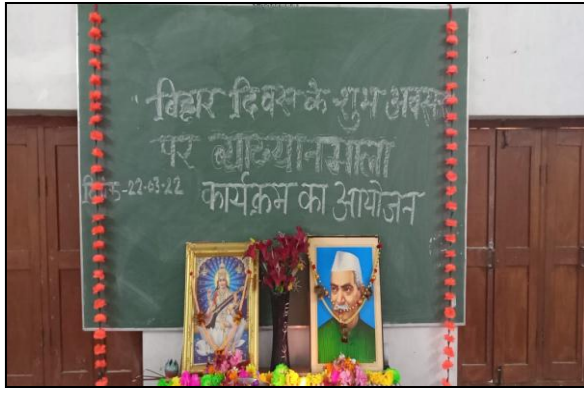 बिहार दिवस के शुभ अवसर
पर व्याख्यानमाला
दिनांक-22-03-22 कार्यक्रम का आयोजन